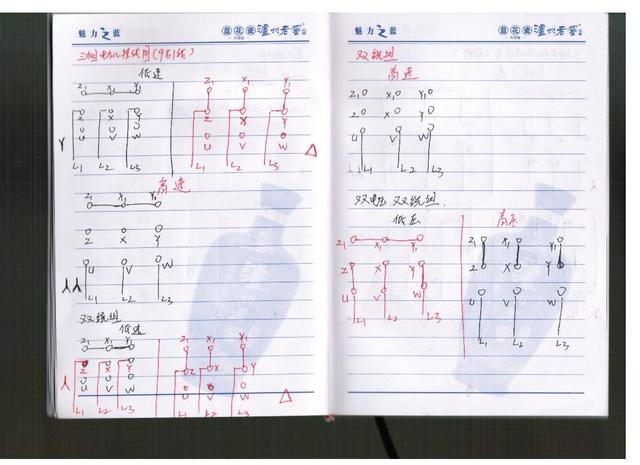 魅力之蓝
三相电机接线图(9引线)
低速
Z1 X1 Y1
Z X Y
U V W
Y
L1 L2 L3
Z1 X1 Y1
Z X Y
U V W
△
L1 L2 L3
高速
Z1 X1 Y1
Z X Y
U V W
人人
L1 L2 L3
双绕组
低速
Z1 X1 Y1
Z X Y
U V W
人
L1 L2 L3
Z1 X1 Y1
Z X Y
△
L1 L2 L3
魅力之蓝
泸州老窖
双绕组
高速
Z1 X1 Y1
Z X Y
U V W
L1 L2 L3
双电压 双绕组
低压
Z1 X1 Y1
Z X Y
U V W
L1 L2 L3
高压
Z1 X1 Y1
Z X Y
U V W
L1 L2 L3